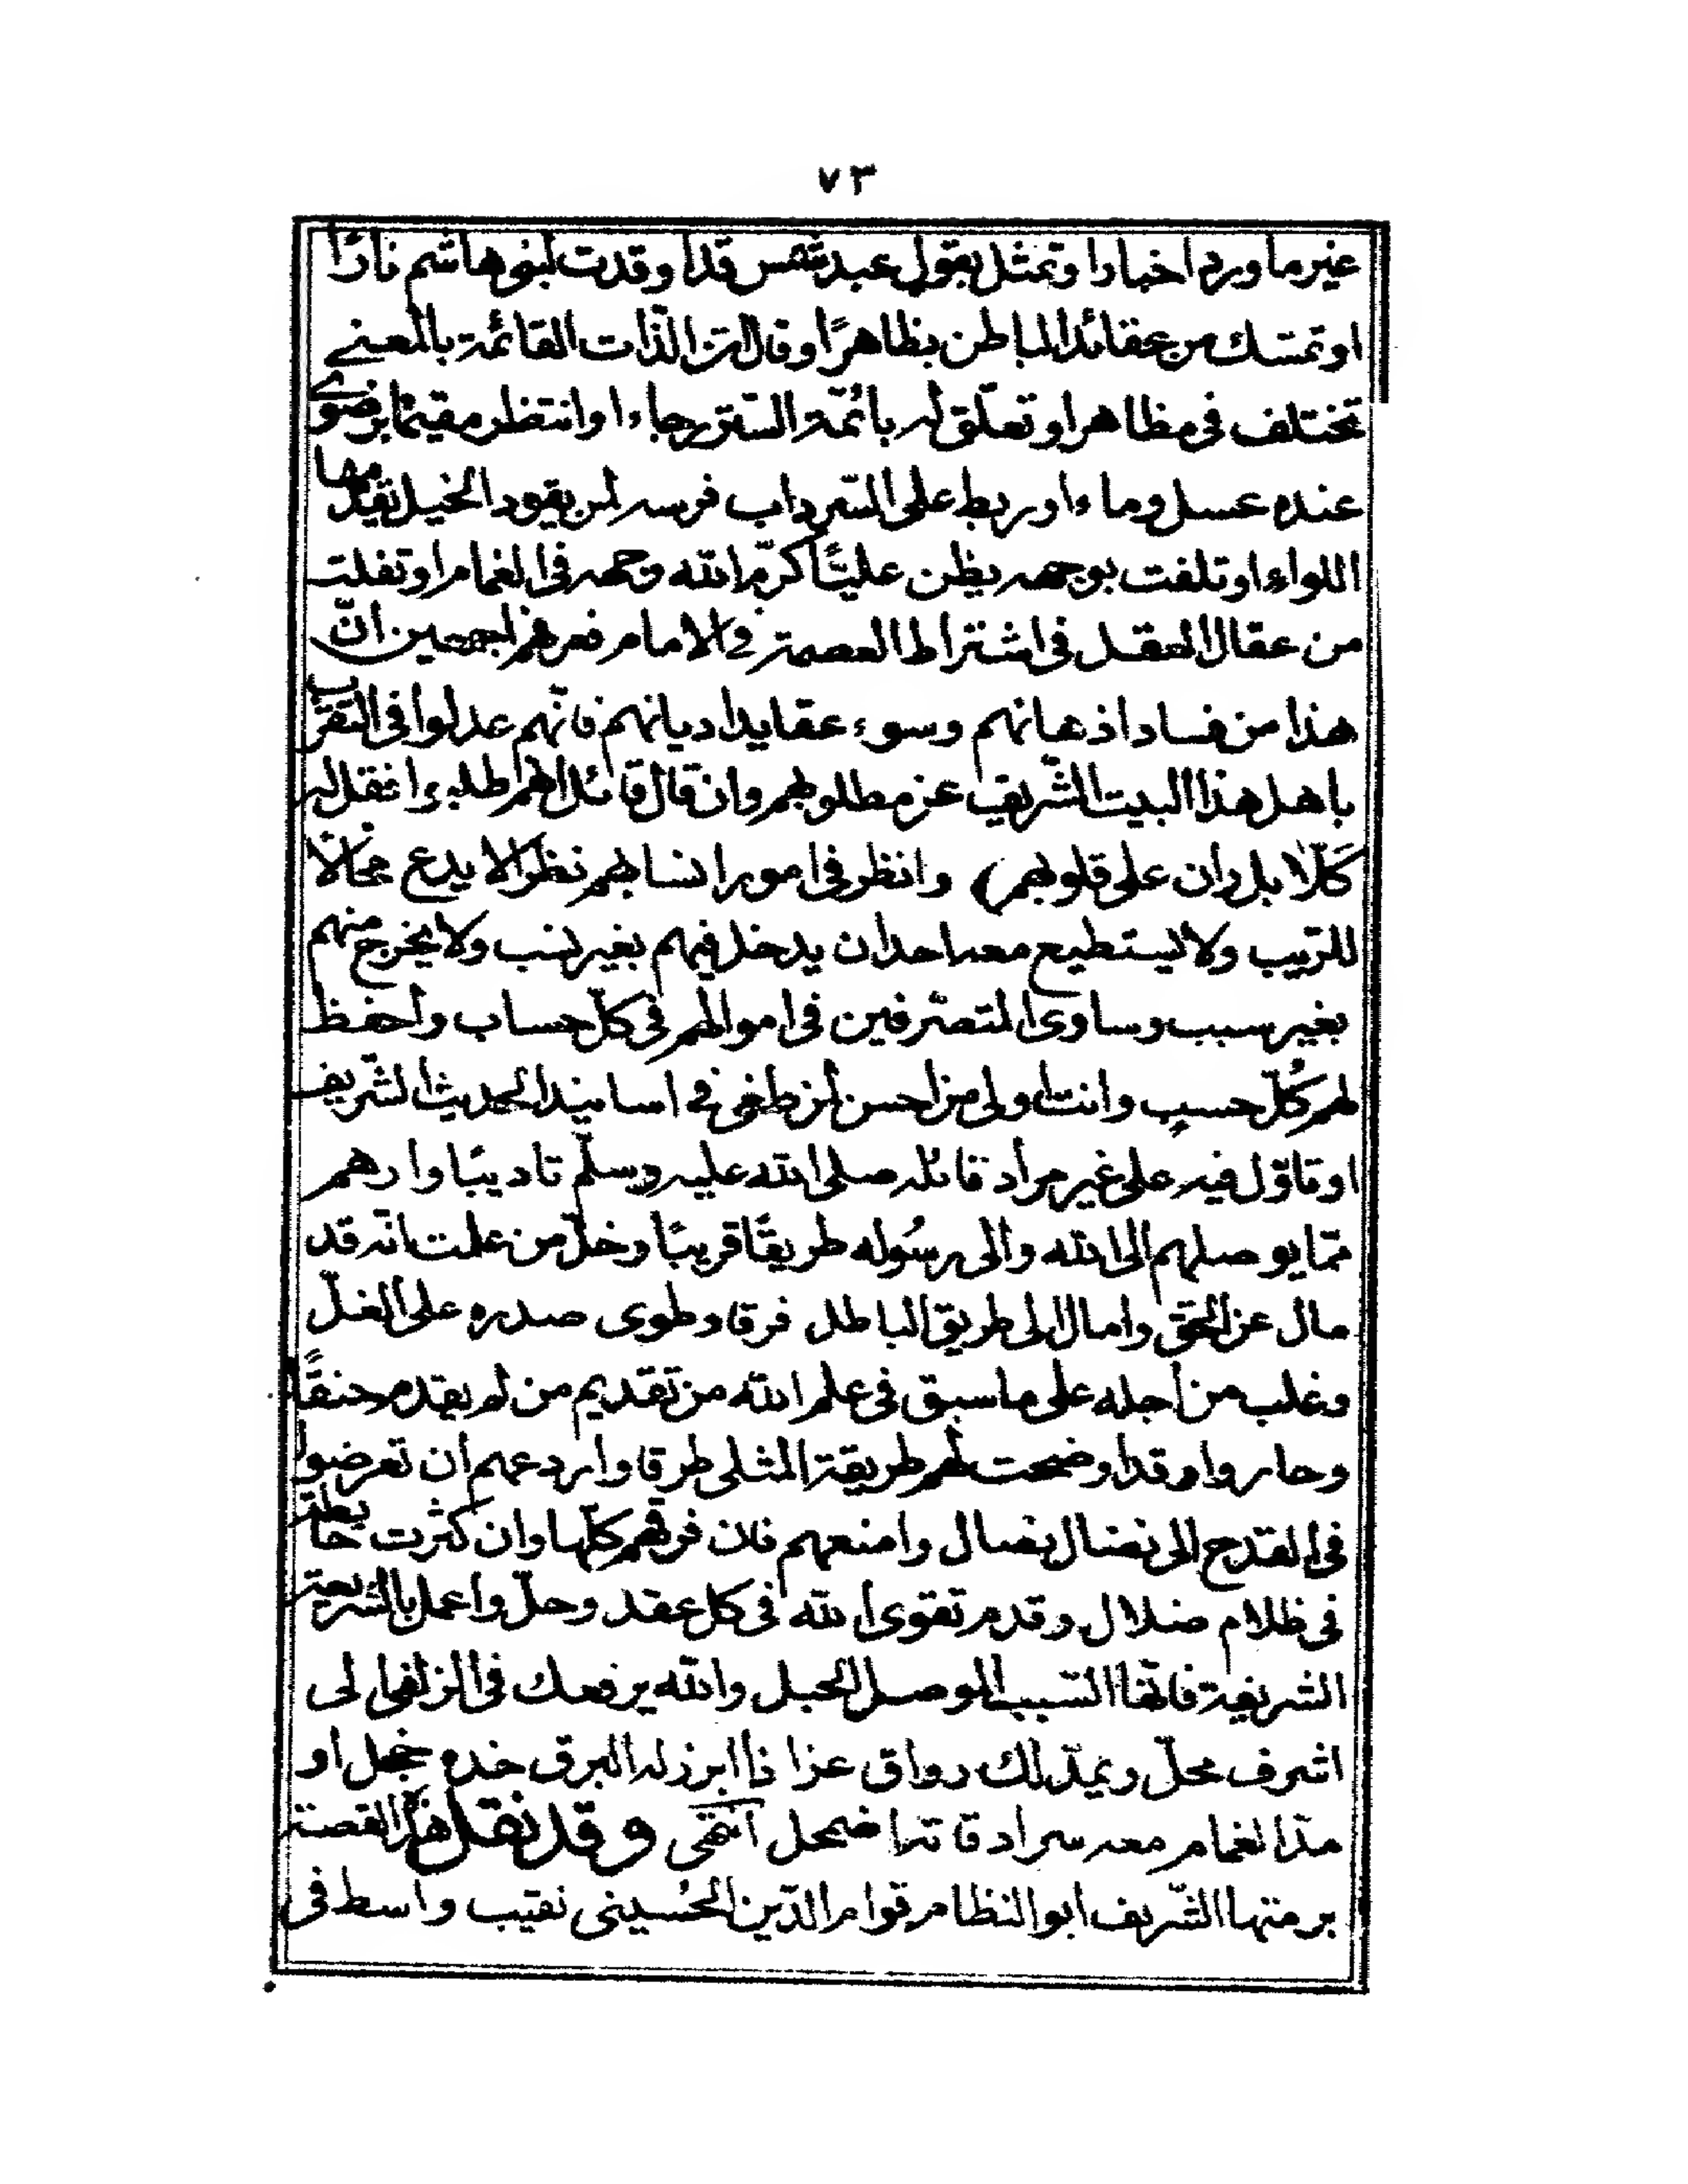 ٧٣
غير ما ورد اخبارا وتمثل بقول عبد شمس قدا وقدت لبنو هاشم نارًا
او تمسّك من عقائد الباطن بظاهرًا وقال انّ الذّات القائمة بالمعنے
تختلف فى مظاهر او تعلّق له بائمّة السّتر رجاء او انتظر مقيمًا برضوے
عنده عسل وماء او ربط على السّرداب فرسه لمن يقود الخيل تقدمها
اللواء او تلفت بوجهه يظن عليًّا كرّم الله وجهه فى الغمام او تفلت
من عقال العقل فى اشتراط العصمة فے الامام فعرفهم اجمعين انّ
هذا من فساد اذهانهم وسوء عقايد اديانهم فانّهم عدلوا فى التقرّب
باهل هذا البيت الشّريف عن مطلوبهم وان قال قائل انهم طلبوا فقل له
كَلّا بل ران على قلوبهم) وانظر فى امور انسابهم نظرا لا يدع مجالًا
للرّيب ولا يستطيع معه احد ان يدخل فيهم بغير نسب ولا يخرج منهم
بغير سبب وساوى المتصّرفين فى اموالهم فى كلّ حساب واحفظ
لهم كُلّ حسبٍ وانت اولى من احسن لمن طغى فے اسانيد الحديث الشّريف
او تاوّل فيه على غير مراد قائله صلى الله عليه وسلّم تاديبًا وارهم
ممّا يوصلهم الى الله والى رسُوله طريقًا قريبًا وخلّ من علمت انّه قد
مال عن الحق وامال الى طريق الباطل فرقا وطوى صدره على الغلّ
وغلب من اجله على ما سبق فى علم الله من تقديم من لم يقدم حنقًا
وحاروا وقد اوضحت لهم طريقة المثلى طرقا واردعهم ان تعرضوا
فى القدح الى نضال نصال وامنعهم فان فرقهم كلّها وان كثرت خابطة
فى ظلام ضلال وقدم تقوى الله فى كل عقد وحلّ واعمل بالشريعة
الشريفة فانّها السّبب الموصل الحبل والله يرفعك فى الزلفى الى
اشرف محلّ ويمدّ لك رواق عز اذا ابرز له البرق خده خجل او
مدّ الغمام معه سرادقاته اضمحل انتهى وقد نقل هذه القصة
برمتها الشّريف ابو النظام قوام الدّين الحُسينى نقيب واسط فى